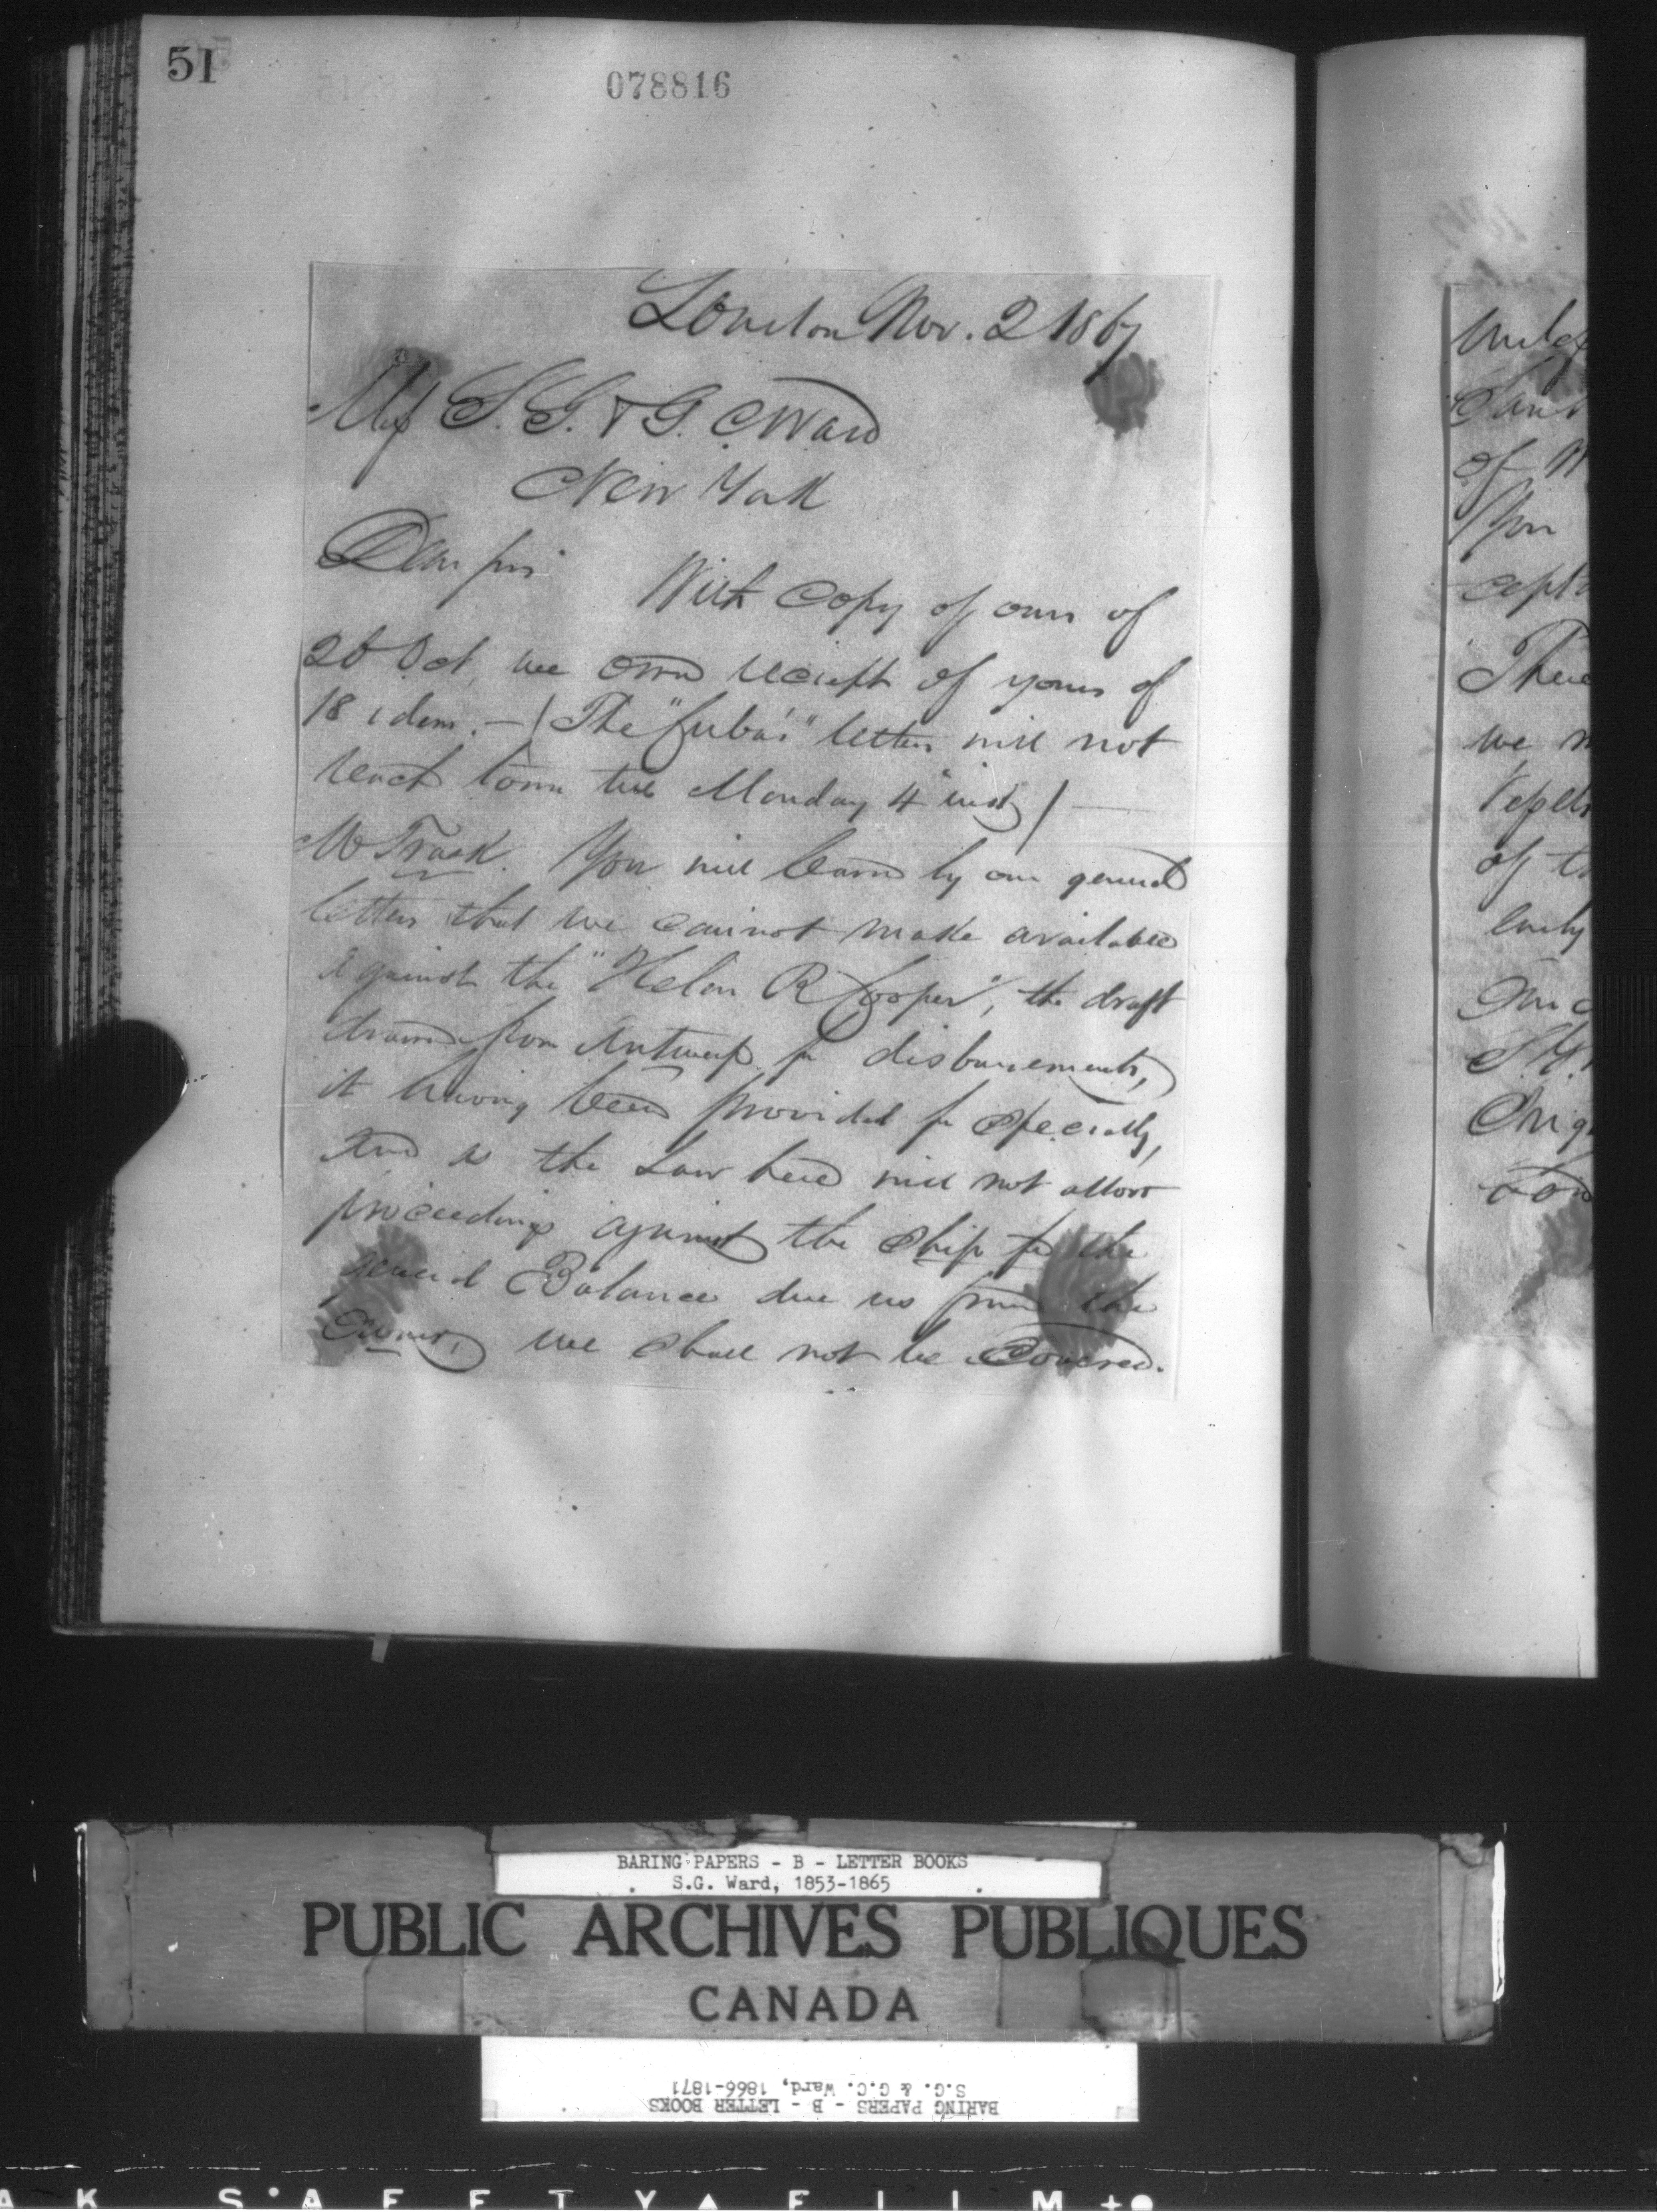 51
078816
London Nov. 2 1867
Mess S. G. & G. C. Ward
New York
Dear Sirs
With copy of ours of
26 Oct, we own receipt of yours of
18 idem. — (The "Cuba's" letters will not
reach town till Monday 4 inst) —
Mr Trask. You will learn by our general
letter that we cannot make available
against the "Helen R Cooper", the draft
drawn from Antwerp for disbursements,
it having been provided for specially,
and as the Law here will not allow
proceedings against the Ship for the
general Balance due us from the
Owner, we shall not be covered.
of
you
There
we
of
BARING PAPERS - B - LETTER BOOKS
S.G. Ward, 1853-1865
PUBLIC ARCHIVES PUBLIQUES
CANADA
BARING PAPERS - B - LETTER BOOKS
S.G. & G.C. Ward, 1866-1871
AK SAFETY FILM